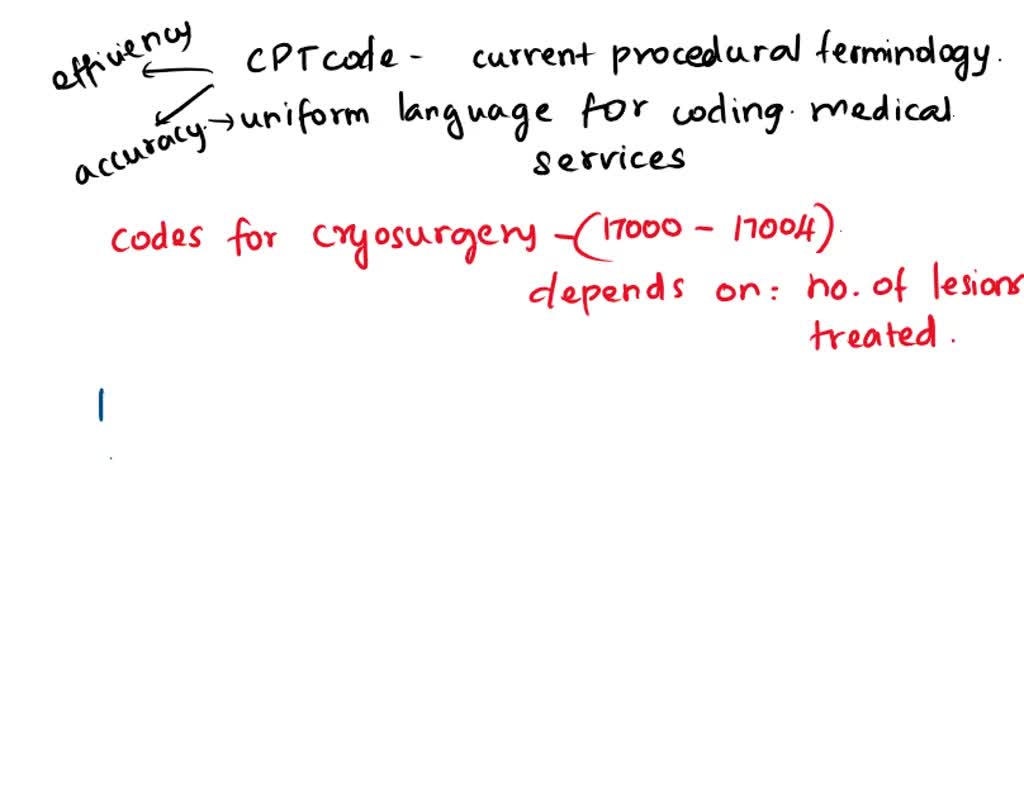 efficiency
CPT code - current procedural terminology.
accuracy. → uniform language for coding. medical
services
codes for cryosurgery - (17000 - 17004)
depends on: no. of lesions
treated.